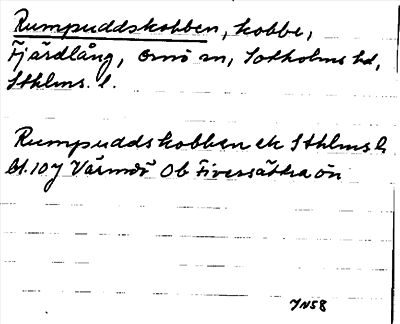 Rumpuddskobben, kobbe,
Fjärdlång, Ornö sn, Sotholms hd,
Sthlms. l.
Rumpuddskobben ek Sthlms l.
Bl. 107 Värmdö Ob Fiversätra ön
JN58